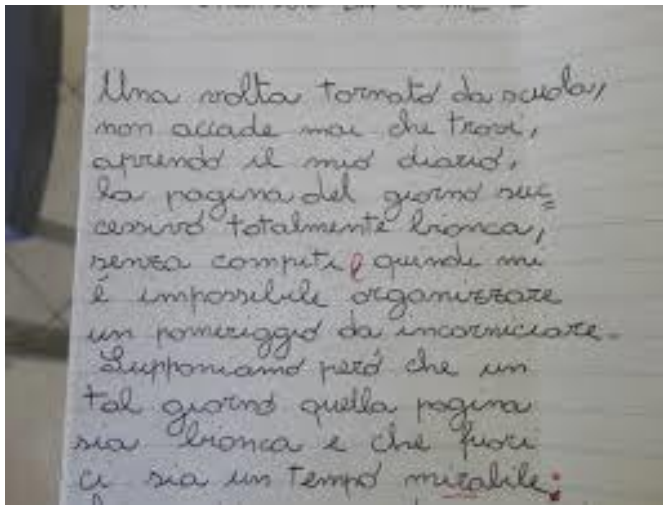 Una volta tornato da scuola,
non accade mai che trovi,
aprendo il mio diario,
la pagina del giorno suc=
cessivo totalmente bianca,
senza compiti, quindi mi
è impossibile organizzare
un pomeriggio da incorniciare.
Supponiamo però che un
tal giorno quella pagina
sia bianca e che fuori
ci sia un tempo mirabile;